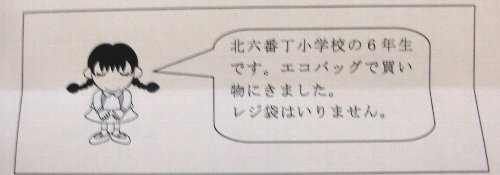 北六番丁小学校の６年生
です。エコバッグで買い
物にきました。
レジ袋はいりません。